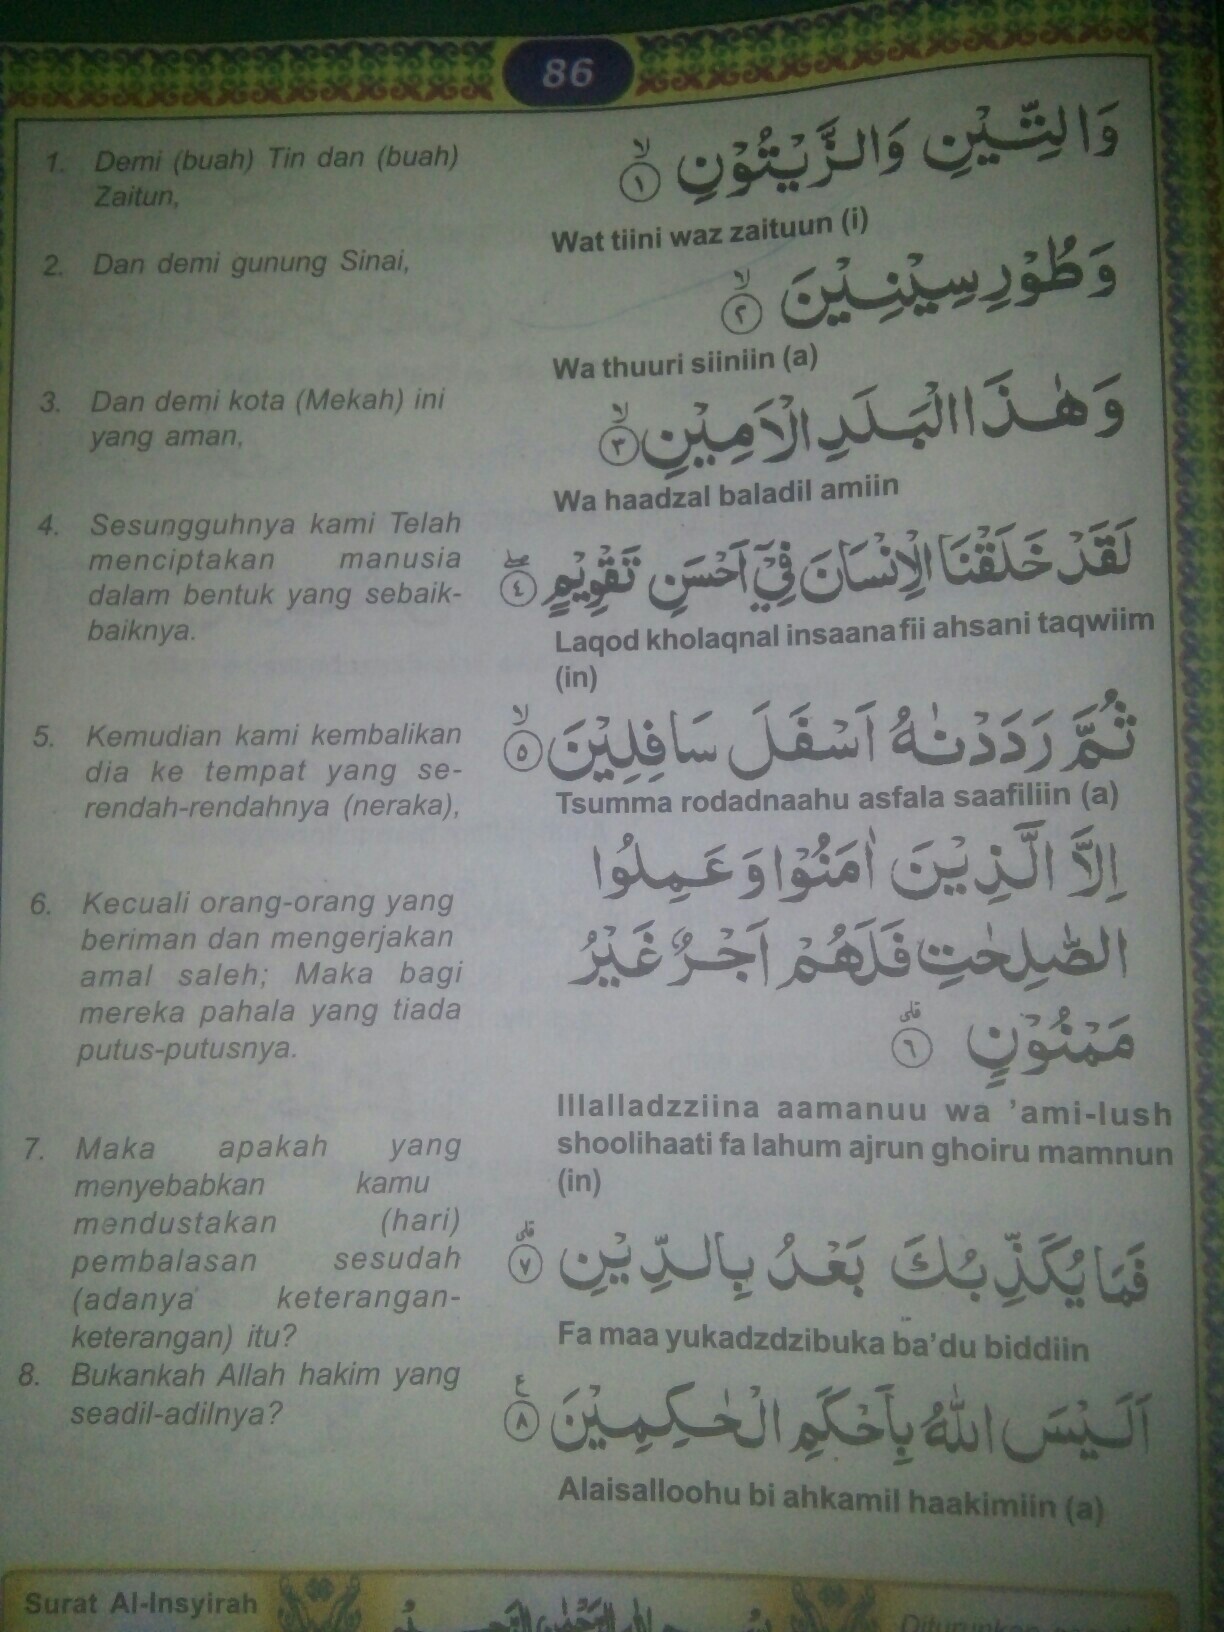 86
1. Demi (buah) Tin dan (buah)
Zaitun,
وَالتِّيْنِ وَالزَّيْتُوْنِ ۙ ١
Wat tiini waz zaituun (i)
2. Dan demi gunung Sinai,
وَطُوْرِ سِيْنِيْنَ ۙ ٢
Wa thuuri siiniin (a)
3. Dan demi kota (Mekah) ini
yang aman,
وَهٰذَا الْبَلَدِ الْاَمِيْنِ ۙ ٣
Wa haadzal baladil amiin
4. Sesungguhnya kami Telah
menciptakan manusia
dalam bentuk yang sebaik-
baiknya.
لَقَدْ خَلَقْنَا الْاِنْسَانَ فِيْٓ اَحْسَنِ تَقْوِيْمٍ ۖ ٤
Laqod kholaqnal insaana fii ahsani taqwiim
(in)
5. Kemudian kami kembalikan
dia ke tempat yang se-
rendah-rendahnya (neraka),
ثُمَّ رَدَدْنٰهُ اَسْفَلَ سَافِلِيْنَ ۙ ٥
Tsumma rodadnaahu asfala saafiliin (a)
6. Kecuali orang-orang yang
beriman dan mengerjakan
amal saleh; Maka bagi
mereka pahala yang tiada
putus-putusnya.
اِلَّا الَّذِيْنَ اٰمَنُوْا وَعَمِلُوا
الصّٰلِحٰتِ فَلَهُمْ اَجْرٌ غَيْرُ
مَمْنُوْنٍ ۗ ٦
Illalladzziina aamanuu wa 'ami-lush
shoolihaati fa lahum ajrun ghoiru mamnun
(in)
7. Maka apakah yang
menyebabkan kamu
mendustakan (hari)
pembalasan sesudah
(adanya keterangan-
keterangan) itu?
فَمَا يُكَذِّبُكَ بَعْدُ بِالدِّيْنِ ۗ ٧
Fa maa yukadzdzibuka ba'du biddiin
8. Bukankah Allah hakim yang
seadil-adilnya?
اَلَيْسَ اللّٰهُ بِاَحْكَمِ الْحٰكِمِيْنَ ࣖ ٨
Alaisalloohu bi ahkamil haakimiin (a)
Surat Al-Insyirah